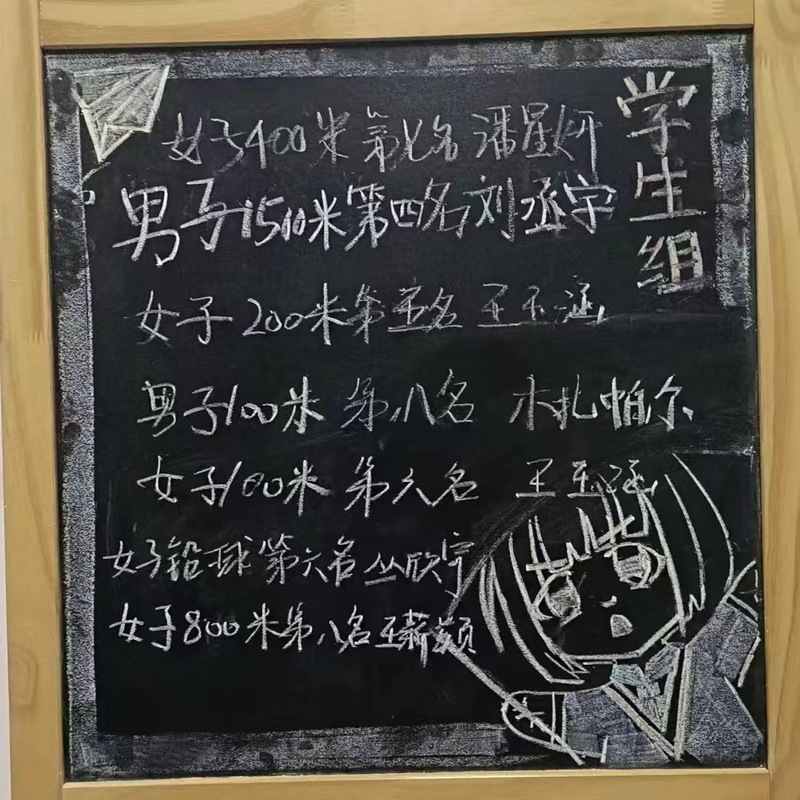 学生组
女子400米 第七名 潘星妍
男子1500米第四名刘丞宇
女子200米第五名 王玉涵
男子100米 第八名 木扎帕尔
女子100米 第六名 王玉涵
女子铅球第六名丛欣宇
女子800米第八名王薪颖